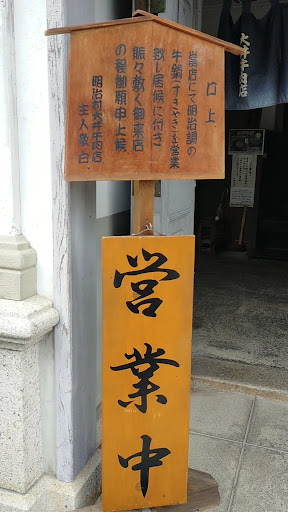 口上
當店にて明治調の
牛鍋(すきやき)を営業
致し居候に付き
賑々敷く御来店
の程御願申上候
明治村大井牛肉店
主人敬白
営業中
大井牛肉店